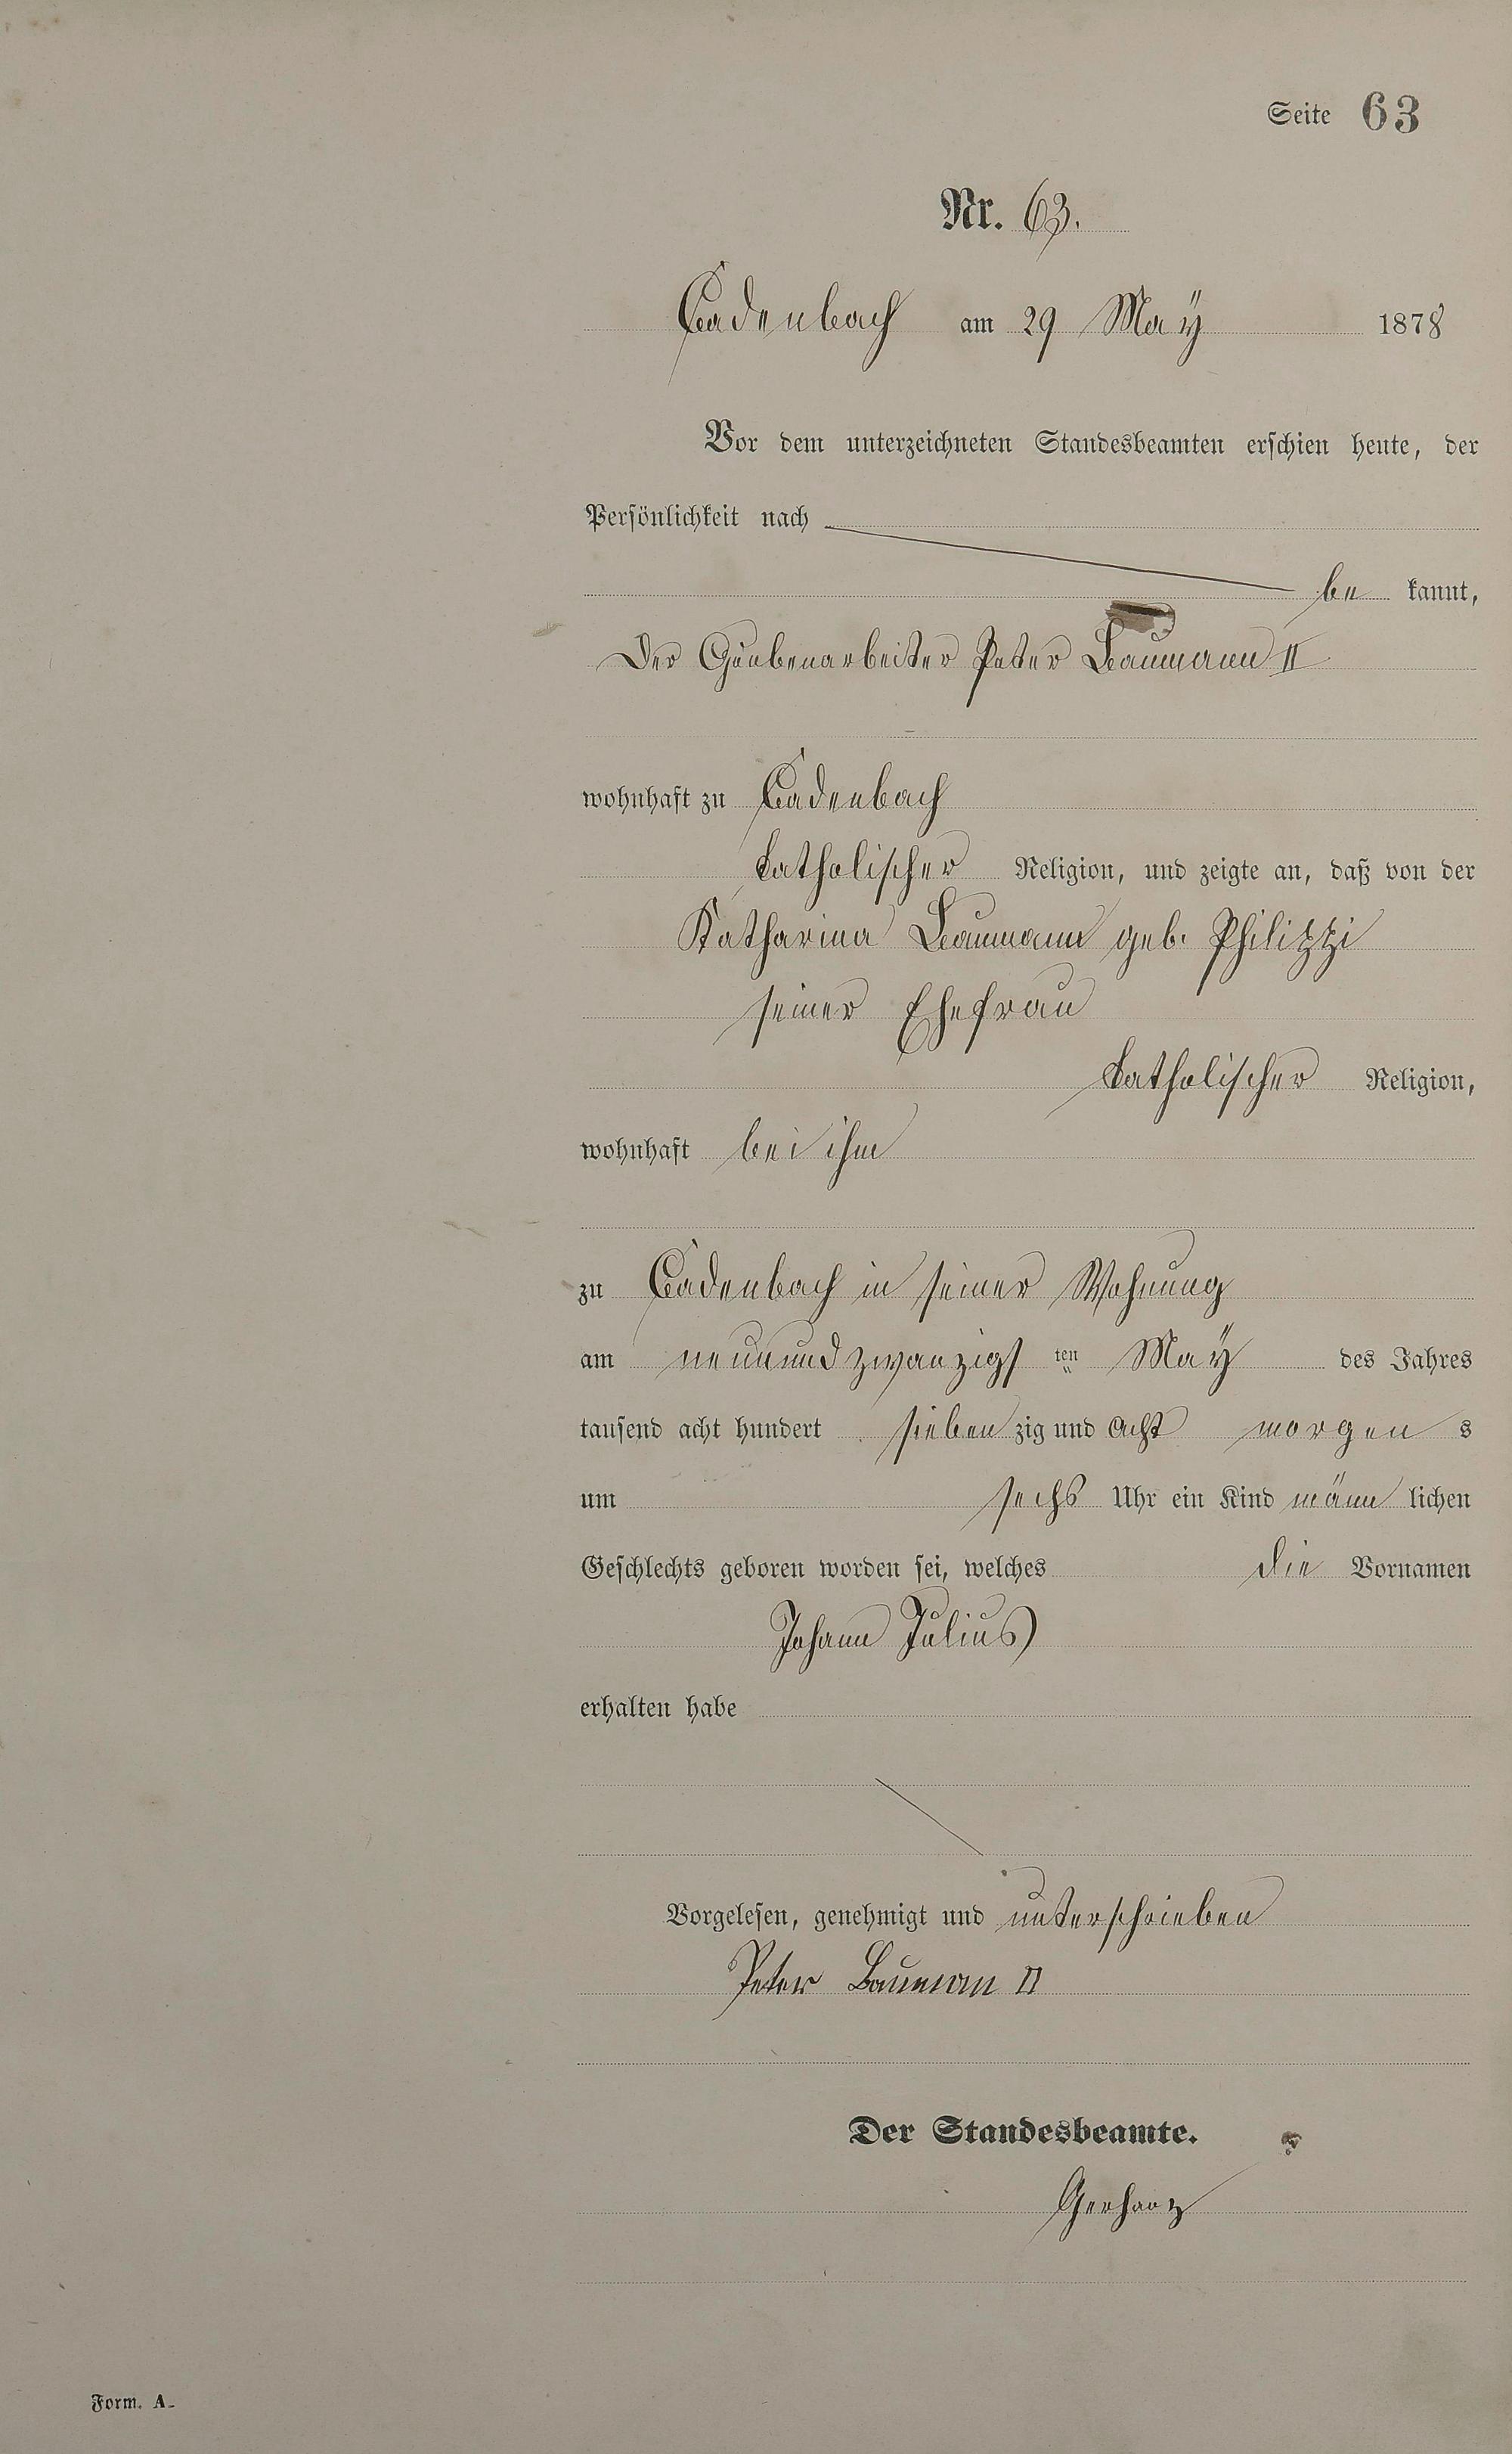 Seite 63
Nr. 63.
Cadenbach am 29 May 1878
Vor dem unterzeichneten Standesbeamten erschien heute, der
Persönlichkeit nach
be kannt,
Der Grubenarbeiter Peter Baumann II
wohnhaft zu Cadenbach
katholischer Religion, und zeigte an, daß von der
Katharina Baumann geb. Philippi
seiner Ehefrau
katholischer Religion,
wohnhaft bei ihm
zu Cadenbach in seiner Wohnung
am neunundzwanzigs ten May des Jahres
tausend acht hundert sieben zig und acht morgen s
um sechs Uhr ein Kind männ lichen
Geschlechts geboren worden sei, welches die Vornamen
Johann Julius
erhalten habe
Vorgelesen, genehmigt und unterschrieben
Peter Bauman II
Der Standesbeamte.
Gerharz
Form. A.